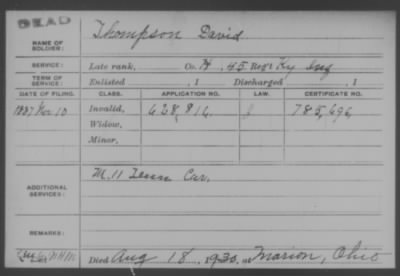 DEAD
NAME OF SOLDIER: Thompson David
SERVICE: Late rank, Co. H, 45 Reg't Ky Inf
TERM OF SERVICE: Enlisted , 1 Discharged , 1
DATE OF FILING. CLASS. APPLICATION NO. LAW. CERTIFICATE NO.
1887 Nov 10 Invalid, 628,816 785,696
Widow,
Minor,
ADDITIONAL SERVICES: M. 11 Tenn Cav.
REMARKS:
Died Aug 18, 1930, at Marion, Ohio